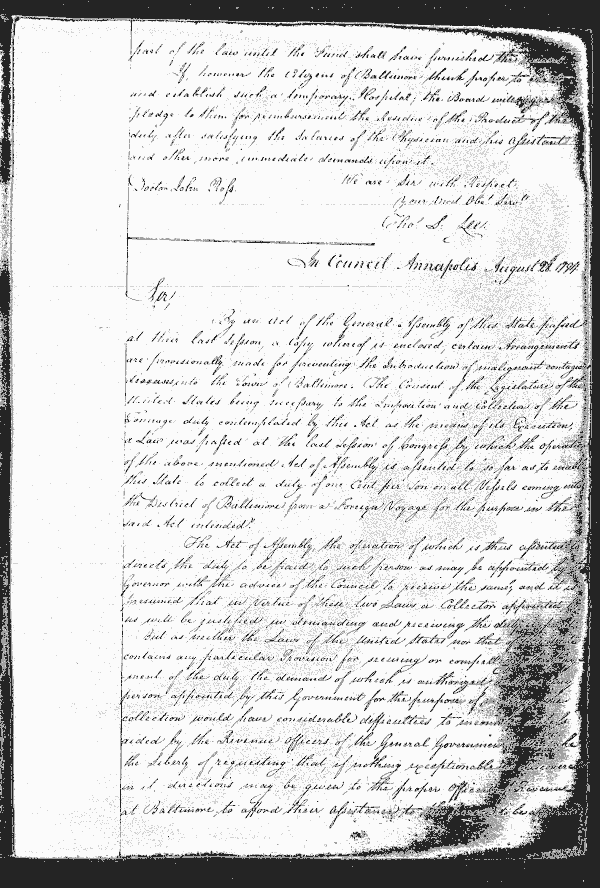 part of the law until the Fund shall have furnished the
If, however the Citizens of Baltimore think proper to
and establish such a temporary Hospital; the Board will
pledge to them for reimbursement the Residue of the Product of the
duty after satisfying the Salaries of the Physician and his Assistant
and other more immediate demands upon it.
Doctor John Ross. We are Sir with Respect
Your Most Obt. Servts
Thos. S. Lee.
In Council Annapolis August 28. 1794
Sir,
By an Act of the General Assembly of this State passed
at their last Session, a Copy whereof is enclosed, certain Arrangements
are provisionally made for preventing the Introduction of malignant contagious
diseases into the Town of Baltimore. The Consent of the Legislature of the
United States being necessary to the Imposition and Collection of the
Tonnage duty contemplated by this Act as the means of its Execution,
a Law was passed at the last Session of Congress by which the operation
of the above mentioned Act of Assembly is assented to so far as to enable
this State to collect a duty of one Cent per Ton on all Vessels coming into
the District of Baltimore from a Foreign Voyage for the purpose in the
said Act intended.
The Act of Assembly, the operation of which is thus assented to
directs the duty to be paid to such person as may be appointed by
Governor with the advice of the Council to receive the same, and it is
presumed that in Virtue of these two Laws a Collector appointed
us will be justified in demanding and receiving the duty
But as neither the Laws of the United States nor that
contains any particular Provision for securing or
ment of the duty the demand of which is authorized
person appointed by this Government for the purpose of
collection would have considerable difficulties to
aided by the Revenue Officers of the General Government
the liberty of requesting that if nothing exceptionable
in it directions may be given to the proper Officers Revenue
at Baltimore to afford their Assistance to the to be